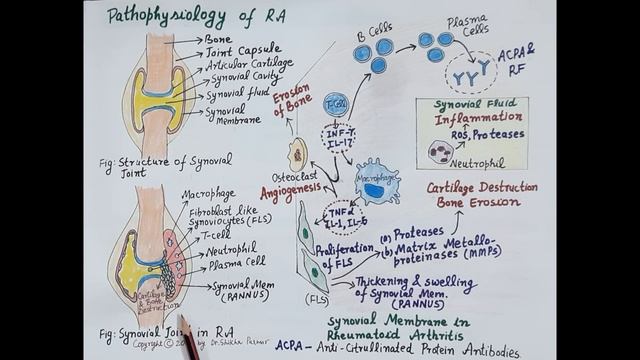 Pathophysiology of RA
Bone
Joint Capsule
Articular Cartilage
Synovial Cavity
Synovial fluid
Synovial
Membrane
Fig: Structure of Synovial
Joint
Macrophage
Fibroblast like
Synoviocytes (FLS)
T-cell
Neutrophil
Plasma Cell
Synovial Mem
(PANNUS)
Cartilage
& Bone
Destruction
Fig: Synovial Joint in RA
Copyright © by Dr. Shikha Parmar
B Cells
Plasma
Cells
ACPA &
RF
Erosion
of Bone
T-Cell
INF-γ
IL-17
Osteoclast
Angiogenesis
Macrophage
TNFα
IL-1, IL-6
Synovial Fluid
Inflammation
ROS, Proteases
Neutrophil
Cartilage Destruction
Bone Erosion
Proliferation
of FLS
(a) Proteases
(b) Matrix Metallo-
proteinases (MMPs)
(FLS)
Thickening & swelling
of Synovial Mem.
(PANNUS)
Synovial Membrane in
Rheumatoid Arthritis
ACPA - Anti-Citrullinated Protein Antibodies